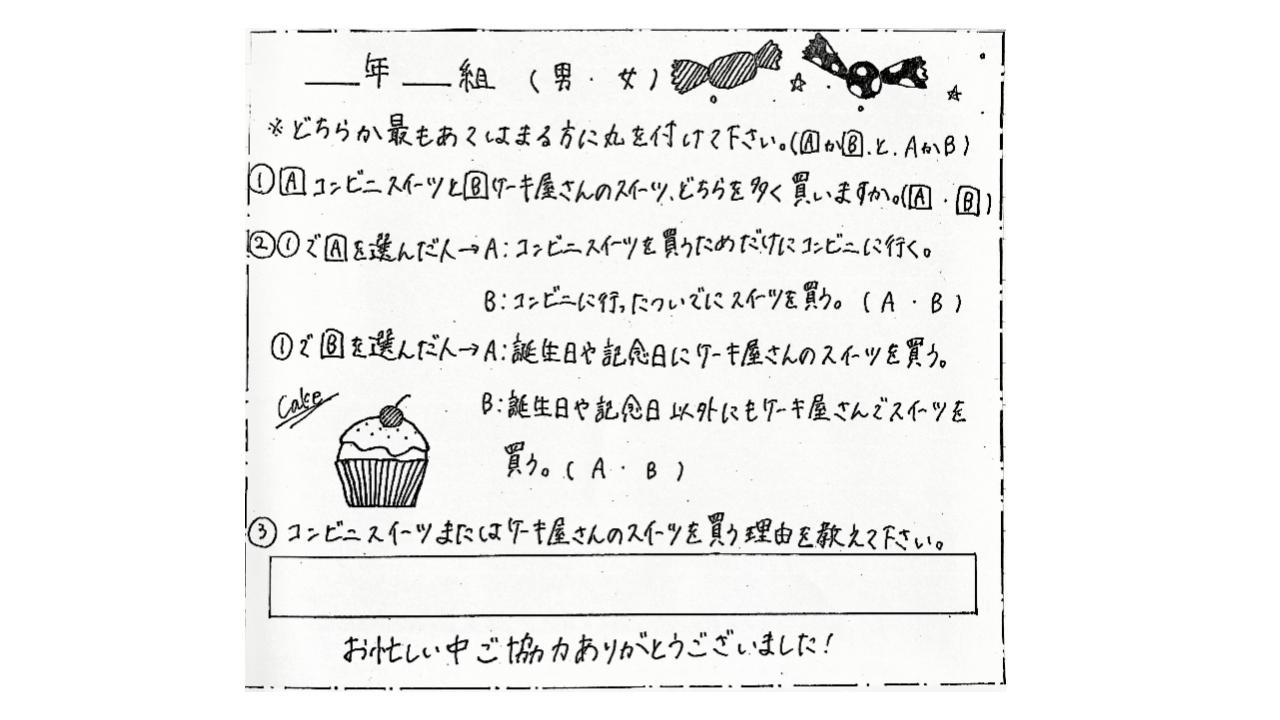 ＿＿年 ＿＿組 （男・女）
※どちらか最もあてはまる方に丸を付けて下さい。(🄰か🄱.と.AかB)
①🄰コンビニスイーツと🄱ケーキ屋さんのスイーツ、どちらを多く買いますか。(🄰・🄱)
②①で🄰を選んだ人→A:コンビニスイーツを買うためだけにコンビニに行く。
B:コンビニに行ったついでにスイーツを買う。(A・B)
①で🄱を選んだ人→A:誕生日や記念日にケーキ屋さんのスイーツを買う。
Cake
B:誕生日や記念日以外にもケーキ屋さんでスイーツを
買う。(A・B)
③コンビニスイーツまたはケーキ屋さんのスイーツを買う理由を教えて下さい。
お忙しい中ご協力ありがとうございました!